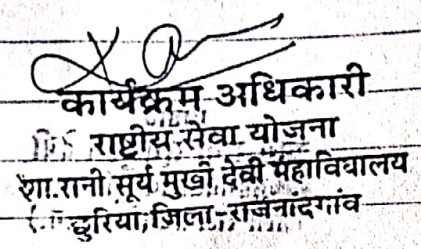 कार्यक्रम अधिकारी
राष्ट्रीय सेवा योजना
शा.रानी सूर्य मुखी देवी महाविद्यालय
छुरिया, जिला-राजनादगांव